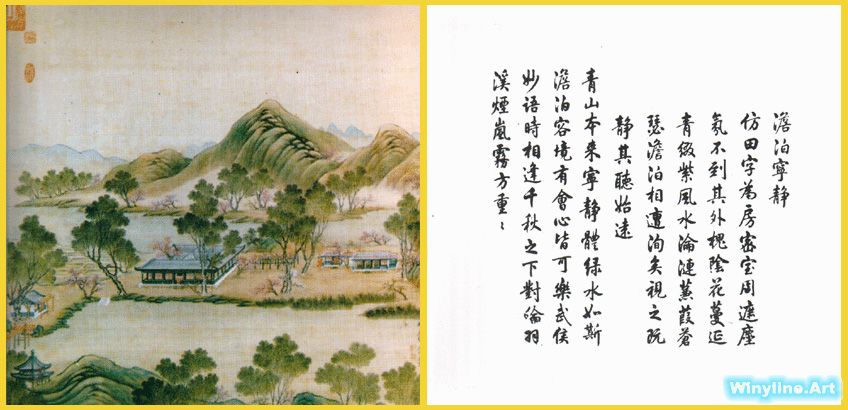 澹泊寧靜
仿田字為房密室周遮塵
氛不到其外槐陰花蔓延
青綴紫風水淪漣蒹葭蒼
瑟澹泊相遭洵矣視之既
靜其聽始遠
青山本來寧靜體綠水如斯
澹泊容境有會心皆可樂武侯
妙語時相逢千秋之下對綸羽
溪煙嵐霧方重〻
Winyline.Art